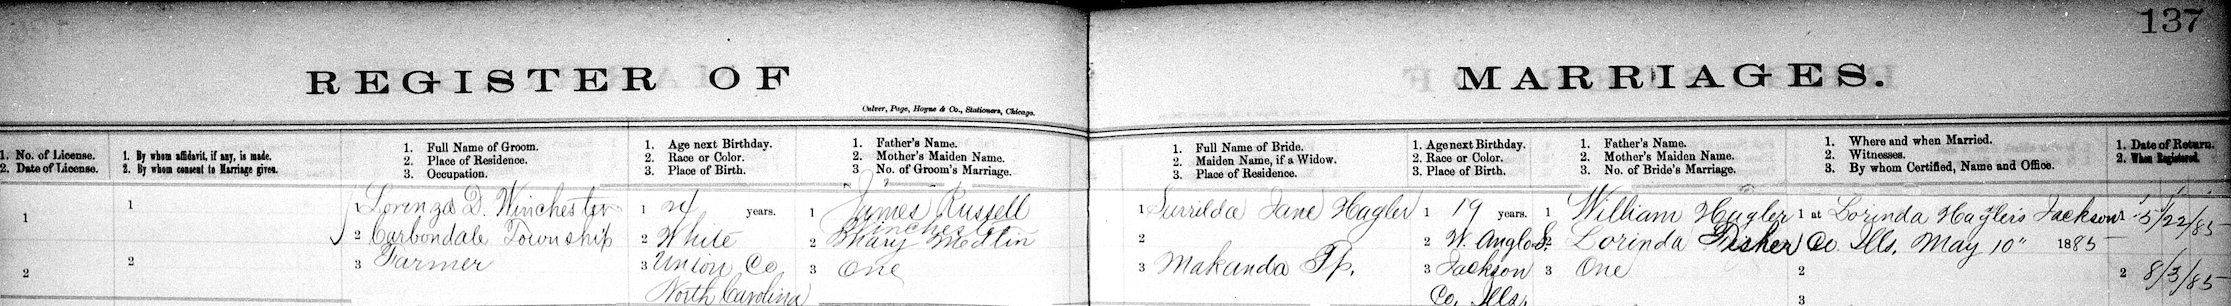 137
REGISTER OF MARRIAGES.
Culver, Page, Hoyne & Co., Stationers, Chicago.
1. No. of License.
2. Date of License.
1. By whom affidavit, if any, is made.
2. By whom consent to Marriage given.
1. Full Name of Groom.
2. Place of Residence.
3. Occupation.
1. Age next Birthday.
2. Race or Color.
3. Place of Birth.
1. Father's Name.
2. Mother's Maiden Name.
3 No. of Groom's Marriage.
1. Full Name of Bride.
2. Maiden Name, if a Widow.
3. Place of Residence.
1. Age next Birthday.
2. Race or Color.
3. Place of Birth.
1. Father's Name.
2. Mother's Maiden Name.
3. No. of Bride's Marriage.
1. Where and when Married.
2. Witnesses.
3. By whom Certified, Name and Office.
1. Date of Return.
2. When Registered.
1
2
1
2
1 Lorenzo D. Winchester
2 Carbondale Township
3 Farmer
1 24 years.
2 White
3 Union Co
North Carolina
1 James Russell
Winchester
2 Mary Medlin
3 One
1 Surrilda Jane Hagler
2
3 Makanda Tp.
1 19 years.
2 W. Anglo S.
3 Jackson
Co. Ills.
1 William Hagler
2 Lorinda Fisher
3 One
1 at Lorinda Hagler's Jackson
Co. Ills. May 10" 1885
2
3
1 5/22/85
2 8/3/85